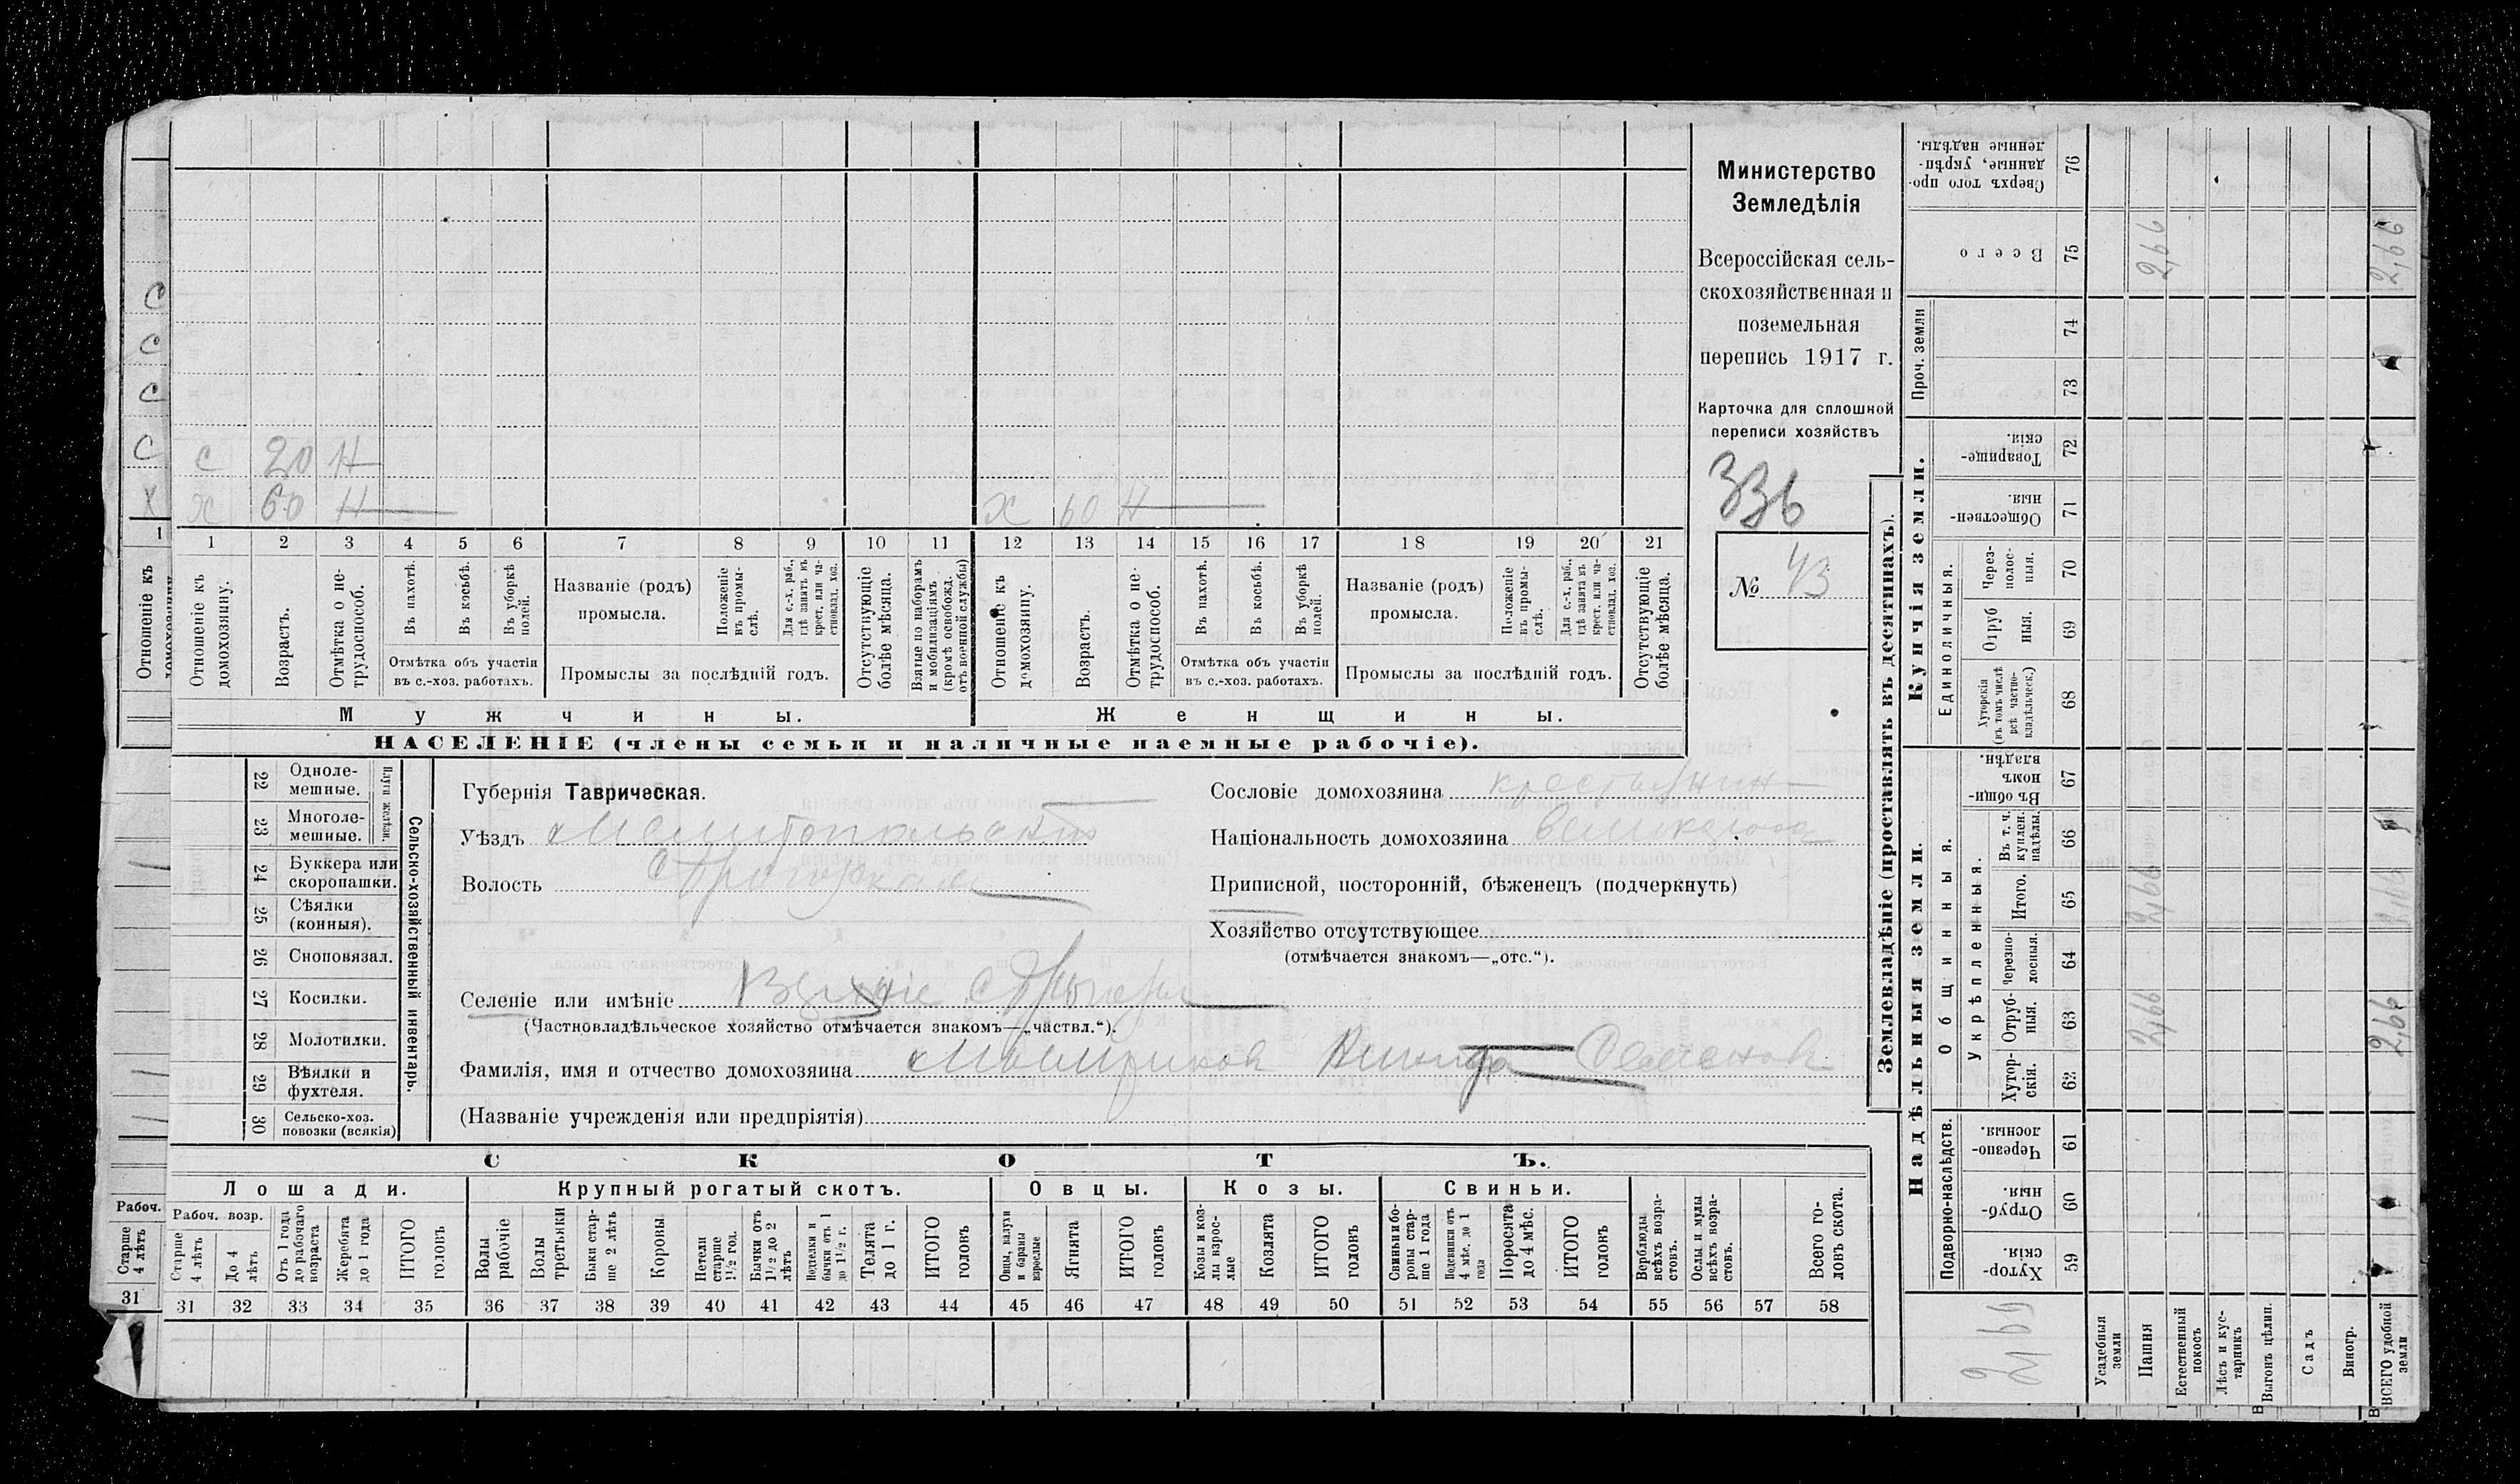 Министерство
Земледѣлія
Всероссійская сель-
скохозяйственная и
поземельная
перепись 1917 г.
Карточка для сплошной
переписи хозяйствъ
336
№ 43
С
С
С
С
X
1
Отношеніе къ
с 20 Н
х 60 Н
х 60 Н
1 2 3 4 5 6 7 8 9 10 11 12 13 14 15 16 17 18 19 20 21
Отношеніе къ домохозяину.
Возрастъ.
Отмѣтка о не-трудоспособ.
Въ пахотѣ.
Въ косьбѣ.
Въ уборкѣ полей.
Отмѣтка объ участіи
въ с.-хоз. работахъ.
Названіе (родъ)
промысла.
Положеніе въ промы-слѣ.
Для с.-х. раб., гдѣ занятъ въ крест. или ча-стновлад. хоз.
Промыслы за послѣдній годъ.
Отсутствующіе болѣе мѣсяца.
Взятые по наборамъ и мобилизаціямъ (кромѣ освобожд. отъ военной службы)
Отношеніе къ домохозяину.
Возрастъ.
Отмѣтка о не-трудоспособ.
Въ пахотѣ.
Въ косьбѣ.
Въ уборкѣ полей.
Отмѣтка объ участіи
въ с.-хоз. работахъ.
Названіе (родъ)
промысла.
Положеніе въ промы-слѣ.
Для с.-х. раб., гдѣ занята въ крест. или ча-стновлад. хоз.
Промыслы за послѣдній годъ.
Отсутствующіе болѣе мѣсяца.
Мужчины.
Женщины.
НАСЕЛЕНІЕ (члены семьи и наличные наемные рабочіе).
Сельско-хозяйственный инвентарь.
Плуги желѣзн.
22 Одноле-мешные.
23 Многоле-мешные.
24 Буккера или скоропашки.
25 Сѣялки (конныя).
26 Сноповязал.
27 Косилки.
28 Молотилки.
29 Вѣялки и фухтеля.
30 Сельско-хоз. повозки (всякія)
Губернія Таврическая.
Уѣздъ Мелитопольскій
Волость
Селеніе или имѣніе
(Частновладѣльческое хозяйство отмѣчается знакомъ—„частвл.“).
Фамилія, имя и отчество домохозяина
(Названіе учрежденія или предпріятія)
Сословіе домохозяина крестьянин
Національность домохозяина
Приписной, посторонній, бѣженецъ (подчеркнуть)
Хозяйство отсутствующее
(отмѣчается знакомъ—„отс.“).
СКОТЪ.
Лошади.
Крупный рогатый скотъ.
Овцы.
Козы.
Свиньи.
Рабоч.
Старше 4 лѣтъ
31
Рабоч. возр.
Старше 4 лѣтъ
До 4 лѣтъ
Отъ 1 года до рабочаго возраста
Жеребята до 1 года
ИТОГО головъ
Волы рабочіе
Волы третьяки
Быки стар-ше 2 лѣтъ
Коровы
Нетели старше 1½ год.
Бычки отъ 1½ до 2 лѣтъ
Подтелки и бычки отъ 1 до 1½ г.
Телята до 1 г.
ИТОГО головъ
Овцы, валухи и бараны взрослые
Ягнята
ИТОГО головъ
Козы и коз-лы взрос-лые
Козлята
ИТОГО головъ
Свиньи и бо-ровы стар-ше 1 года
Подсвинки отъ 4 мѣс. до 1 года
Поросята до 4 мѣс.
ИТОГО головъ
Верблюды всѣхъ возра-стовъ.
Ослы и мулы всѣхъ возра-стовъ.
Всего го-ловъ скота.
31 32 33 34 35 36 37 38 39 40 41 42 43 44 45 46 47 48 49 50 51 52 53 54 55 56 57 58
Землевладѣніе (проставлять въ десятинахъ).
Надѣльныя земли.
Купчія земли.
Проч. земли
Подворно-наслѣдств.
Общинныя.
Укрѣпленныя.
Единоличныя.
59 Хутор-скія.
60 Отруб-ныя.
61 Черезпо-лосныя.
62 Хутор-скія.
63 Отруб-ныя.
64 Черезпо-лосныя.
65 Итого.
66 Въ т. ч. куплен. надѣлы.
67 Въ общи-номъ владѣн.
68 Хуторскія (въ томъ числѣ всѣ частно-владѣльческ.)
69 Отруб ныя.
70 Через-полос-ныя.
71 Обществен-ныя.
72 Товарище-скія.
73
74
75 Всего
76 Сверхъ того про-данные, укрѣп-ленные надѣлы.
Усадебныя земли
Пашня
2,66
2,66
2,66
Естественный покосъ
Лѣсъ и кус-тарникъ
Выгонъ цѣлин.
Садъ
Виногр.
ВСЕГО удобной земли
2,66
2,66